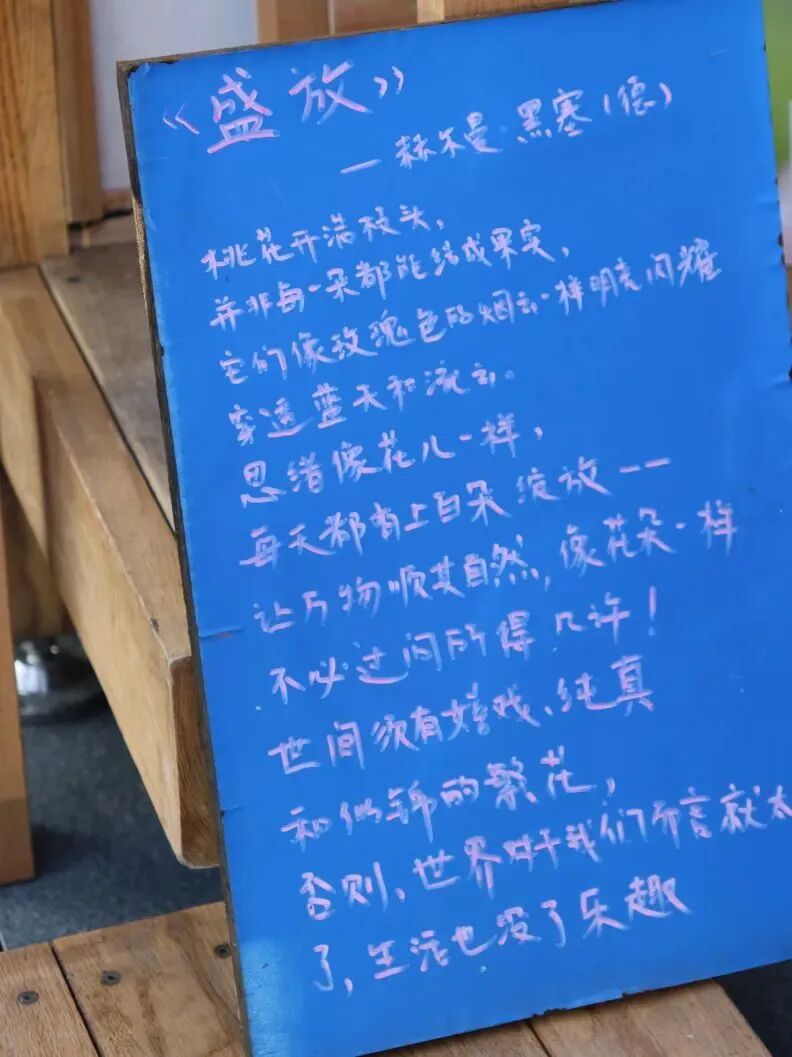 《盛放》
— 赫尔曼 黑塞(德)
桃花开满枝头，
并非每一朵都能结成果实，
它们像玫瑰色的烟云一样明亮闪耀
穿透蓝天和流云。
思绪像花儿一样，
每天都有上百朵绽放——
让万物顺其自然，像花朵一样
不必过问所得几许！
世间须有嬉戏、纯真
和似锦的繁花，
否则、世界对于我们而言就太
了，生活也没了乐趣